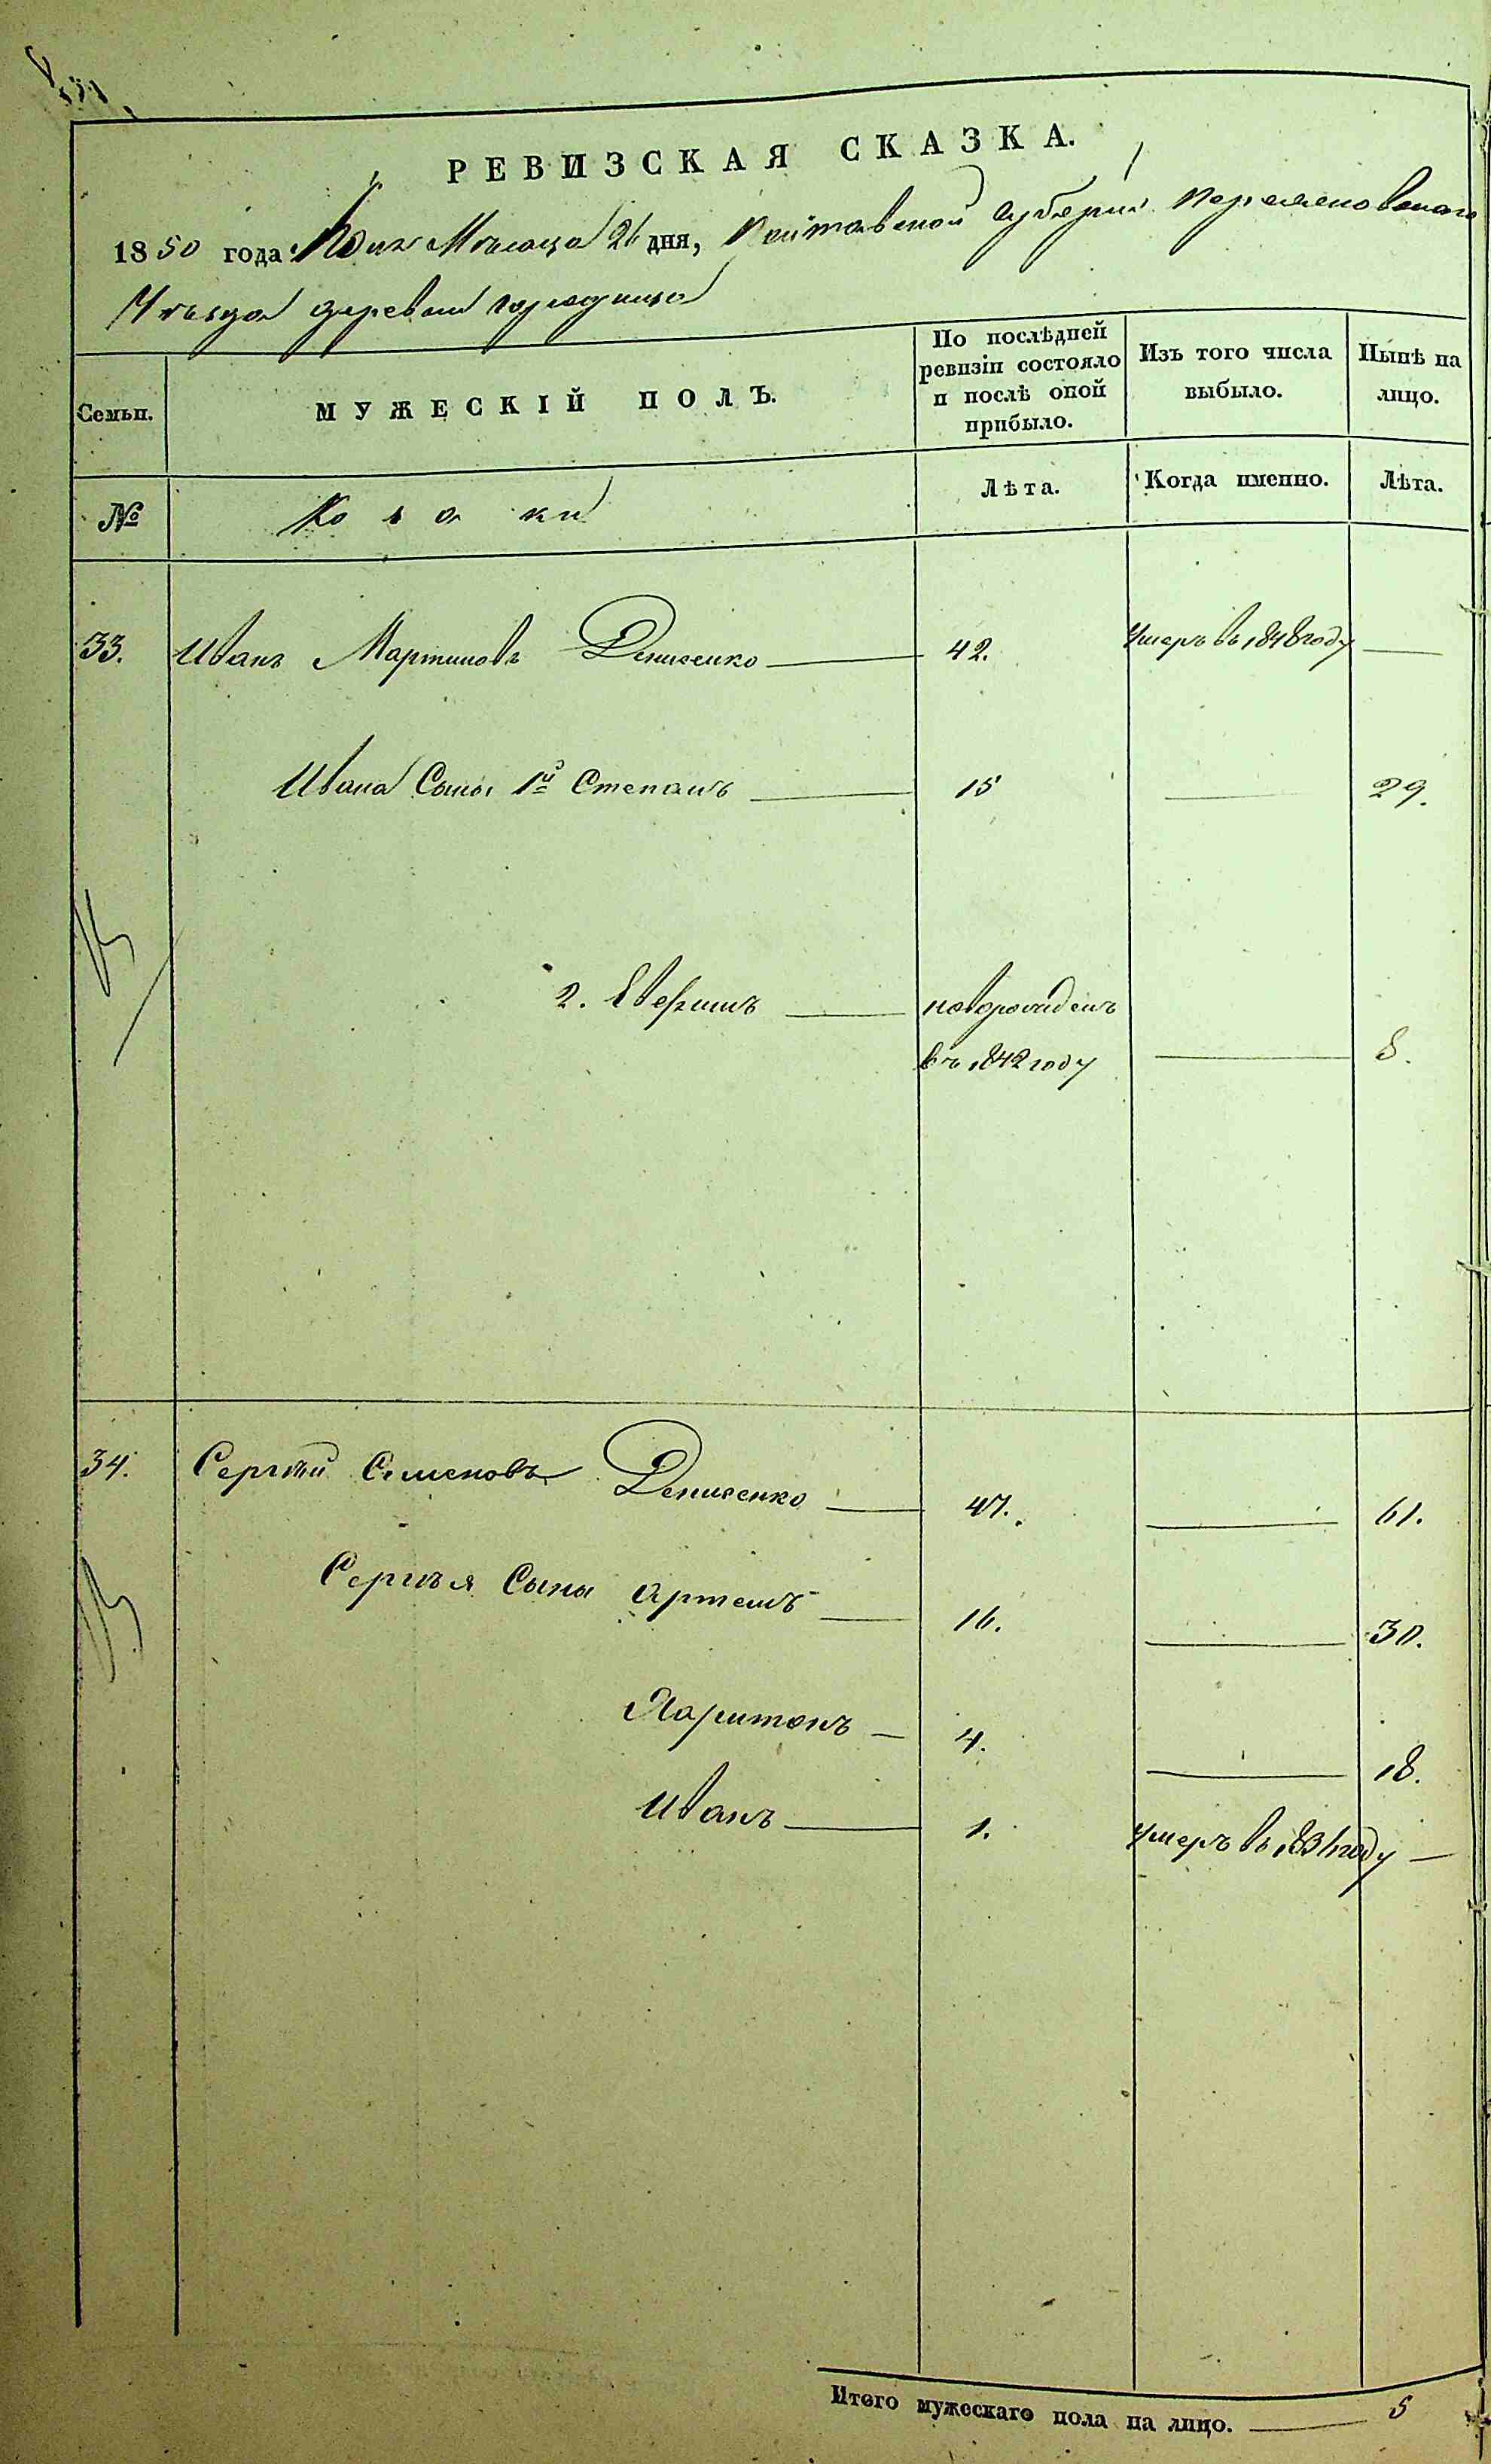 РЕВИЗСКАЯ СКАЗКА.
1850 года Юня Мѣсяца 26 дня, Полтавской Губерніи Переяславскаго
Уѣзда деревни Городища
Семьи.
МУЖЕСКІЙ ПОЛЪ.
По послѣдней
ревизіи состояло
и послѣ оной
прибыло.
Изъ того числа
выбыло.
Нынѣ на
лицо.
№
Козаки
Лѣта.
Когда именно.
Лѣта.
33. Иванъ Мартиновъ Денисенко 42. Умеръ въ 1848 году
Ивана Сыны 1й Степанъ 15 29.
2. новорожденъ
въ 1842 году 8.
34. Сергѣй Семеновъ Денисенко 47. 61.
Сергѣя Сыны Артемъ 16. 30.
Харитонъ 4. 18.
Иванъ 1. умеръ въ 1836 году
Итого мужескаго пола на лицо. 5